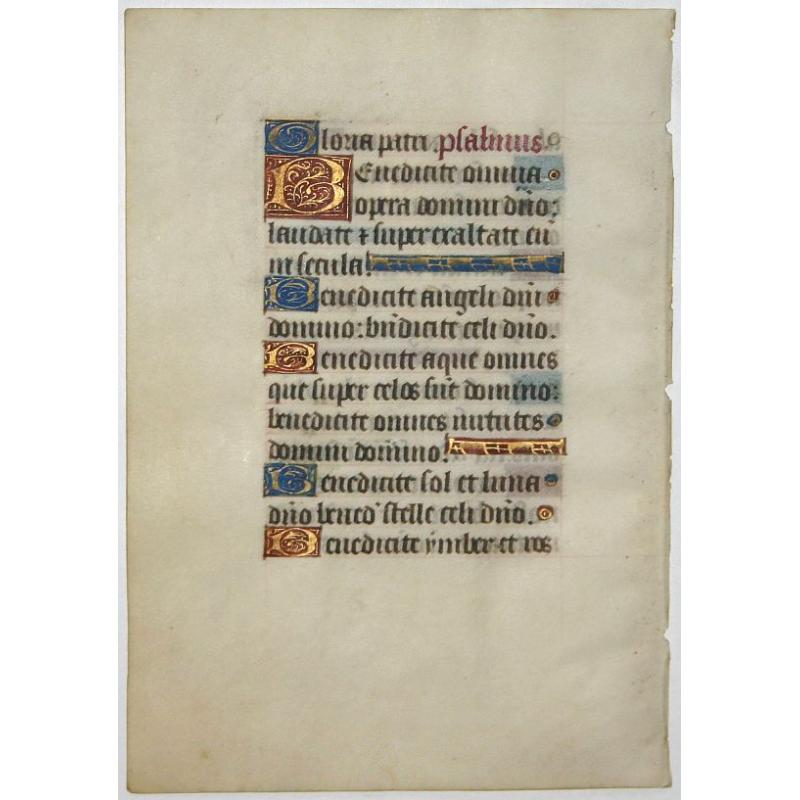 Gloria patri. psalmus.
BEnedicite omnia
opera domini dño:
laudate ⁊ superexaltate eũ
in secula.
Benedicite angeli dñi
domino: bñdicite celi dño.
Benedicite aque omnes
que super celos sũt domino:
benedicite omnes uirtutes
domini domino.
Benedicite sol et luna
dño bened' stelle celi dño.
Benedicite ymber et ros